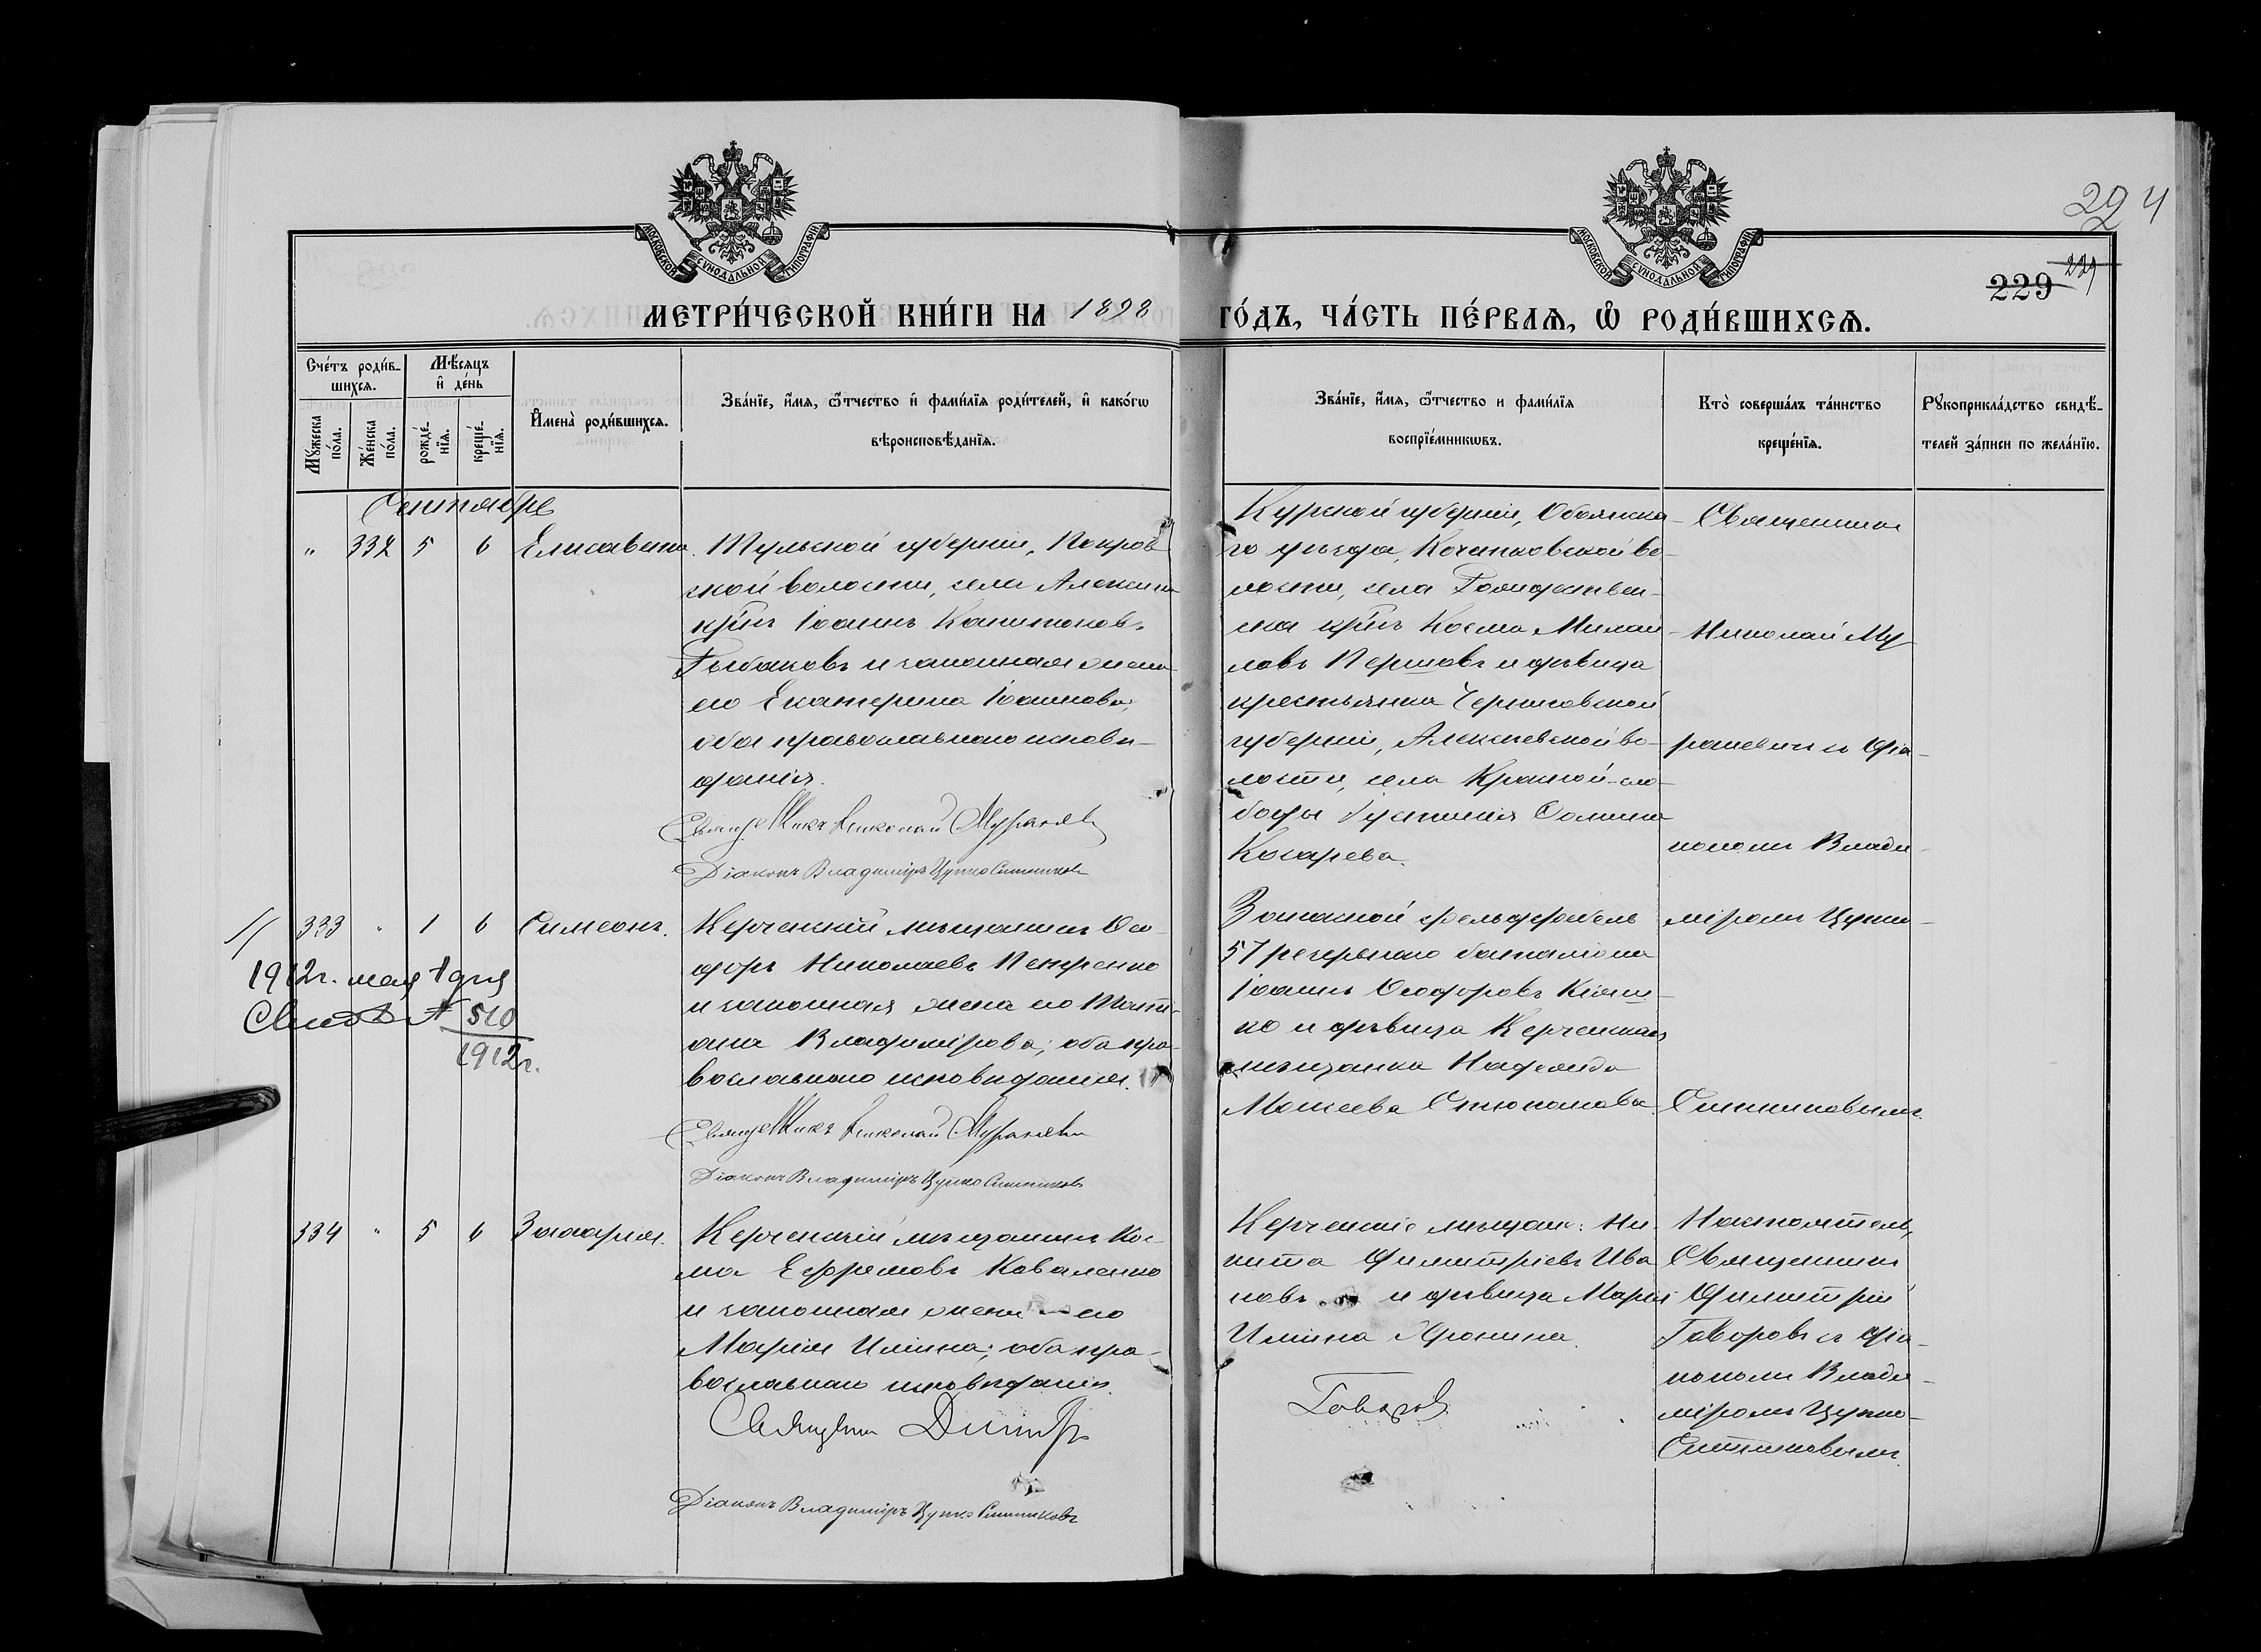 МОСКОВСКОЙ СѴНОДАЛЬНОЙ ТИПОГРАФІИ
МОСКОВСКОЙ СѴНОДАЛЬНОЙ ТИПОГРАФІИ
224
229
229
МЕТРИ́ЧЕСКОЙ КНИ́ГИ НА 1898
ГО́ДЪ, ЧА́СТЬ ПЕ́РВАѦ, Ѡ҆ РОДИ́ВШИХСѦ.
Сче́тъ роди́в-
шихсѧ.
Мꙋ́жеска по́ла.
Же́нска по́ла.
Мѣ́сѧцъ
и҆ де́нь
рожде́-
нїѧ.
креще́-
нїѧ.
И҆мена̀ роди́вшихсѧ.
Зва́нїе, и҆́мѧ, ѻ҆́тчество и҆ фами́лїѧ роди́телей, и҆ како́гѡ
вѣроисповѣ́данїѧ.
Зва́нїе, и҆́мѧ, ѻ҆́тчество и фами́лїѧ
воспрїе́мникѡвъ.
Кто̀ соверша́лъ та́инство
креще́нїѧ.
Рꙋкоприкла́дство свидѣ́-
телей за́писи по жела́нїю.
Сентябрь
" 332 5 6 Елисавета.
Тульской губерніи, Покров
ской волости, села Алексина
Іоаннъ Капитоновъ
Рыбаковъ и законная жена
его Екатерина Іоаннова;
оба православнаго исповѣ-
данія.
Священникъ Николай
Діаконъ Владиміръ Цупко Ситниковъ
Курской губерніи, Обоянска-
го уѣзда, Кочетковской во-
лости, села
Косма Михаи
ловъ Першовъ и дѣвица
крестьянка Черниговской
губерніи, Алексѣевской во-
лости, села Красной-сло-
боды
Косарева.
Священникъ
Николай Му
раневичъ съ діа-
кономъ Влади-
міромъ Цупко-
Ситниковымъ.
333 " 1 6 Симеонъ.
1912г. мая 1 дня
№ 510
1912г.
Керченскій мѣщанинъ Ѳео-
доръ Николаевъ Петренко
и законная жена его Тати-
ана Владимірова; оба пра-
вославнаго исповѣданія.
Священникъ Николай
Діаконъ Владиміръ Цупко Ситниковъ
Запасной фельдфебель
57 резервнаго баталіона
Іоаннъ Ѳеодоровъ Кіяш-
ко и дѣвица Керченская
мѣщанка Надежда
Моисеева
334 " 5 6 Захарія.
Керченскій мѣщанинъ Кос-
ма Ефремовъ Коваленко
и законная жена его
Марія Ильина; оба пра-
вославнаго исповѣданія.
Священникъ Димитр
Діаконъ Владиміръ Цупко Ситниковъ
Керченскіе мѣщане: Ни-
кита Димитріевъ Ива
новъ и дѣвица Марія
Ильина Яронина.
Говоровъ
Настоятель,
Священникъ
Димитрій
Говоровъ съ діа-
кономъ Влади-
міромъ Цупко-
Ситниковымъ.